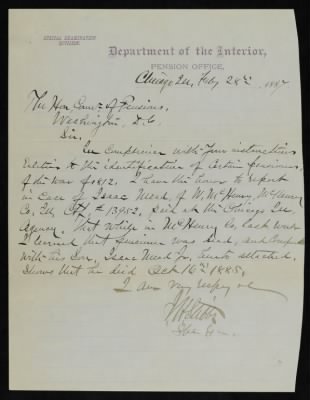 SPECIAL EXAMINATION
DIVISION.
Department of the Interior,
PENSION OFFICE,
Chicago Ills, Feby 28th, 1887
The Hon Comr of Pensions,
Washington, D.C.
Sir,
In compliance with your instructions
relative to the identification of certain pensioners
of the War of 1812, I have the honor to report
in case of Isaac Mead, of W. McHenry, McHenry
Co. Ills, Ctf. 13982, paid at the Chicago Ills
Agency. that while in McHenry Co, last week
I learned that pensioner was dead, and
with his Son, Isaac Mead Jr, attached.
Shows that he died Oct 16th 1885.
I am very respy
Spe Ex